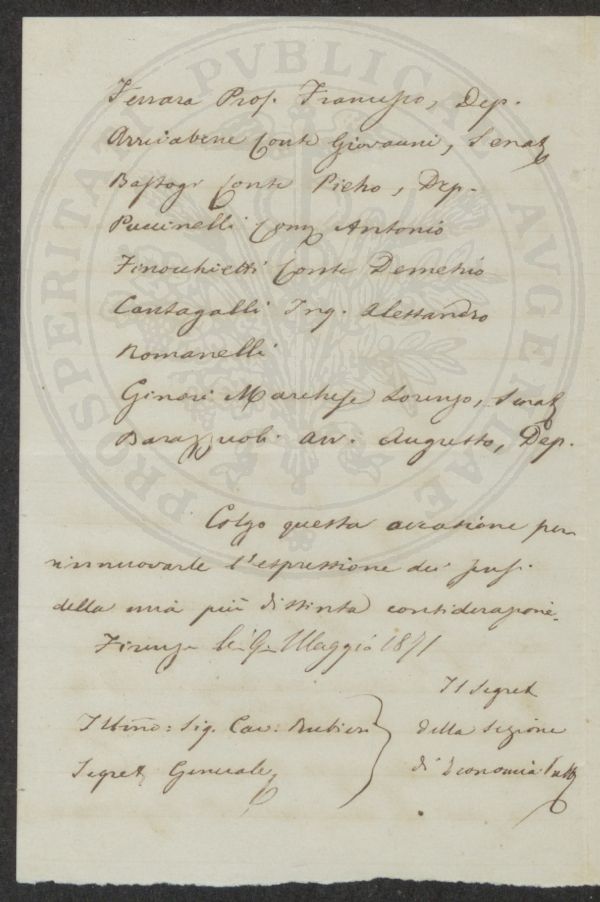 Ferrara Prof. Francesco, Dep.
Arrivabene Conte Giovanni, Senat
Bastogi Conte Pietro, Dep.
Puccinelli Antonio
Finocchietti Conte Demetrio
Cantagalli Ing. Alessandro
Romanelli
Ginori Marchese Lorenzo, Senat
Barazzuoli Avv. Augusto, Dep.
Colgo questa occasione per
rinnuovarle l'espressione dei sensi
della mia più distinta considerazione.
Firenze li 9 Maggio 1871
Il Segret
Illmo: Sig. Cav: Rubieri
della Sezione
Segret Generale
di Economia
PROSPERITATI PVBLICAE AVGENDAE